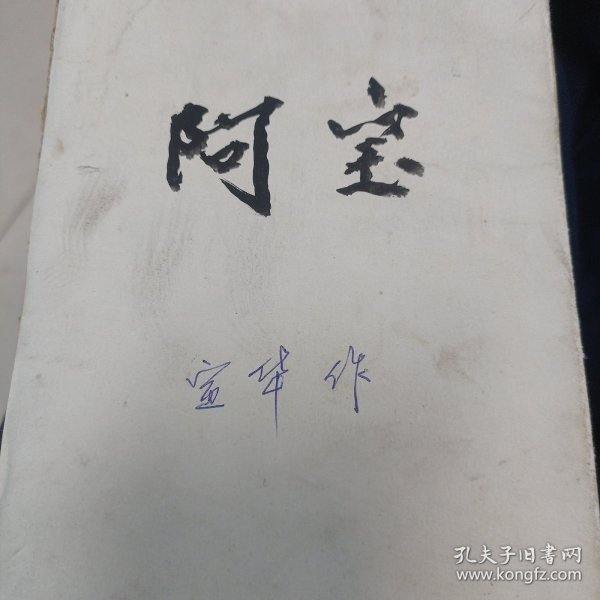 阿宝
宣华作
孔夫子旧书网
www.kongfz.com